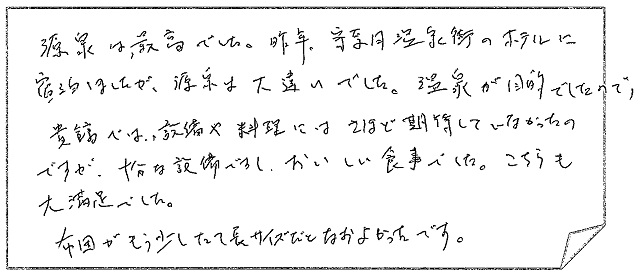 源泉は、最高でした。昨年、宇奈月温泉街のホテルに
宿泊しましたが、源泉は大違いでした。温泉が目的でしたので、
貴館では、設備や料理にはさほど期待していなかったの
ですが、十分な設備ですし、おいしい食事でした。こちらも
大満足でした。
布団がもう少したて長サイズだとなおよかったです。